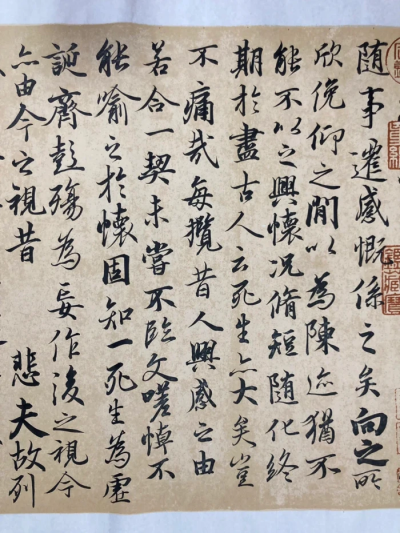 随事遷感慨係之矣向之所
欣俛仰之閒以為陳迹猶不
能不以之興懷況脩短随化終
期於盡古人云死生亦大矣豈
不痛哉每攬昔人興感之由
若合一契未嘗不臨文嗟悼不
能喻之於懷固知一死生為虛
誕齊彭殤為妄作後之視今
亦由今之視昔 悲夫故列